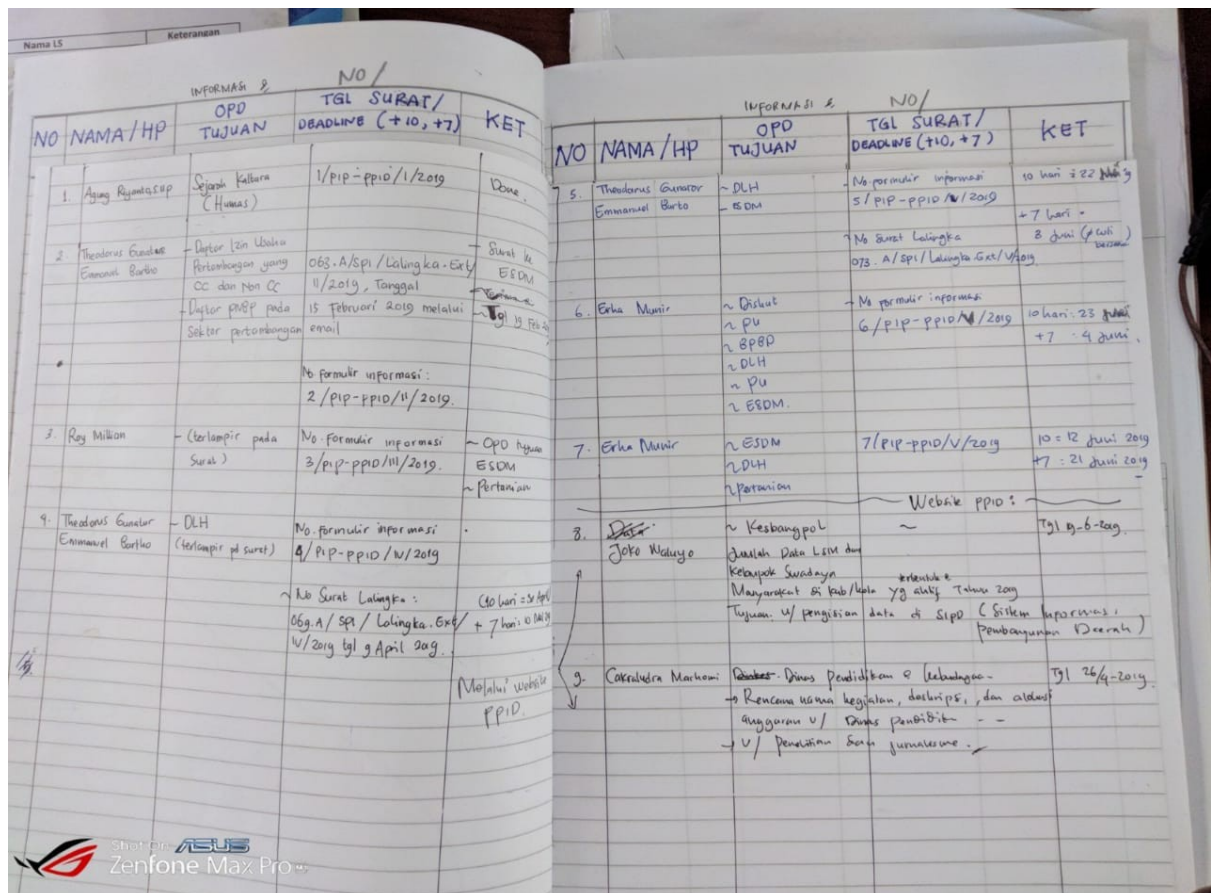 Nama LS
Keterangan
INFORMASI &
NO/
NO
NAMA/HP
OPD
TUJUAN
TGL SURAT/
DEADLINE (+10, +7)
KET
1.
Agung
Sejarah Kaltara
(Humas)
1/PIP-PPID/I/2019
Done.
2.
Theodorus
Bartho
- Daftar Izin Usaha
Pertambangan yang
CC dan Non CC
- Daftar PNBP pada
Sektor pertambangan
063.A/SPI/Lalingka.Ext/
II/2019, Tanggal
15 Februari 2019 melalui
email
No formulir informasi :
2/PIP-PPID/II/2019.
- Surat ke
ESDM
Tgl 19 Feb
3.
Roy Million
- (terlampir pada
Surat)
No. formulir informasi
3/PIP-PPID/III/2019.
~ OPD tujuan
ESDM
~ Pertanian
4.
Theodorus
Emmanuel Bartho
- DLH
(terlampir pd surat)
No. formulir informasi
4/PIP-PPID/IV/2019
~ No Surat Lalingka :
069.A/SPI/Lalingka.Ext/
IV/2019 tgl 9 April 2019.
(10 hari =
+ 7 hari : 10
Melalui website
PPID.
INFORMASI &
NO/
NO
NAMA/HP
OPD
TUJUAN
TGL SURAT/
DEADLINE (+10, +7)
KET
5.
Theodorus
Emmanuel Barto
~ DLH
- ESDM
- No formulir informasi
5/PIP-PPID/V/2019
~ No Surat Lalingka
073.A/SPI/Lalingka.Ext/V/2019
10 hari : 22
+7 hari =
3 Juni
6.
Erha Munir
~ Dishut
~ PU
~ BPBD
~ DLH
~ PU
~ ESDM.
- No formulir informasi
6/PIP-PPID/V/2019
10 hari : 23
+7 : 4 Juni.
7.
Erha Munir
~ ESDM
~ DLH
~ Pertanian
7/PIP-PPID/V/2019
10 = 12 Juni 2019
+7 : 21 Juni 2019
Website PPID :
8.
Joko Waluyo
~ Kesbangpol
~
Tgl 19-6-2019.
Jumlah Data LSM dan
Kelompok Swadaya
Masyarakat di kab/kota yg aktif Tahun 2019
Tujuan. U/ pengisian data di SIPD (Sistem Informasi
Pembangunan Daerah)
9.
Cakraludra
Dinas Pendidikan & Kebudayaan -
→ Rencana nama kegiatan, deskripsi, dan alokasi
anggaran U/ Dinas Pendidik - -
→ U/ Penelitian dan jurnalisme.
Tgl 26/4-2019.
Shot On ASUS
Zenfone Max Pro M1